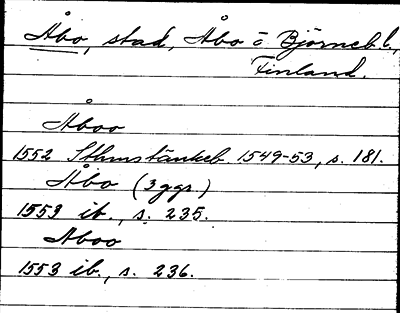 Åbo, stad, Åbo o Björneb.l.,
Finland.
Åboo
1552 Sthmstänkeb. 1549-53, s. 181.
Åbo (3 ggr.)
1553 ib., s. 235.
Aboo
1553 ib., s. 236.